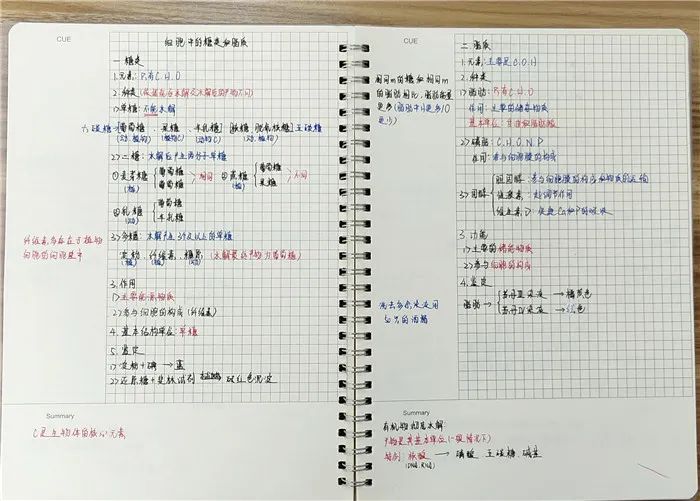 CUE
细胞中的糖类和脂质
一.糖类
1.元素:只有C.H.O
2.种类(依据能否水解及水解后的产物不同)
1>单糖:不能水解
六碳糖 葡萄糖、果糖、半乳糖 核糖、脱氧核糖 五碳糖
(动.植物) (植物) (动物) (动.植物)
2>二糖:水解产生两分子单糖
①麦芽糖 葡萄糖 葡萄糖 >相同 ②蔗糖 葡萄糖 果糖 >不同
(植) (植)
③乳糖 葡萄糖 半乳糖
(动)
3>多糖:水解产生3个及以上的单糖
淀粉、纤维素、糖原(水解最终产物为葡萄糖)
(植) (植) (动)
纤维素多存在于植物
细胞的细胞壁中
3.作用
1>主要能源物质
2>参与细胞的构成(纤维素)
4.基本结构单位:单糖
5.鉴定
1>淀粉+碘→蓝
2>还原糖+斐林试剂 砖红色沉淀
Summary
C是生物体的核心元素
CUE
二.脂质
1.元素:主要是C.O.H
2.种类
1>脂肪:只有C.H.O
作用:主要的储能物质
基本单位:甘油和脂肪酸
相同m的糖和相同m
的脂肪相比,脂肪能量
更多(脂肪中H更多O
更少)
2>磷脂:C.H.O.N.P
作用:参与细胞膜的构成
3>固醇 胆固醇:参与细胞膜的构成和物质的运输
性激素:起调节作用
维生素D:促进Ca和P的吸收
3.功能
1>主要的储能物质
2>参与细胞的构成
4.鉴定
脂肪→ 苏丹Ⅲ染液→橘黄色
苏丹Ⅳ染液→红色
洗去多余染液用
50%的酒精
Summary
有机物彻底水解:
产物是其基本单位(一般情况下)
特例:核酸→磷酸、五碳糖、碱基
(DNA.RNA)